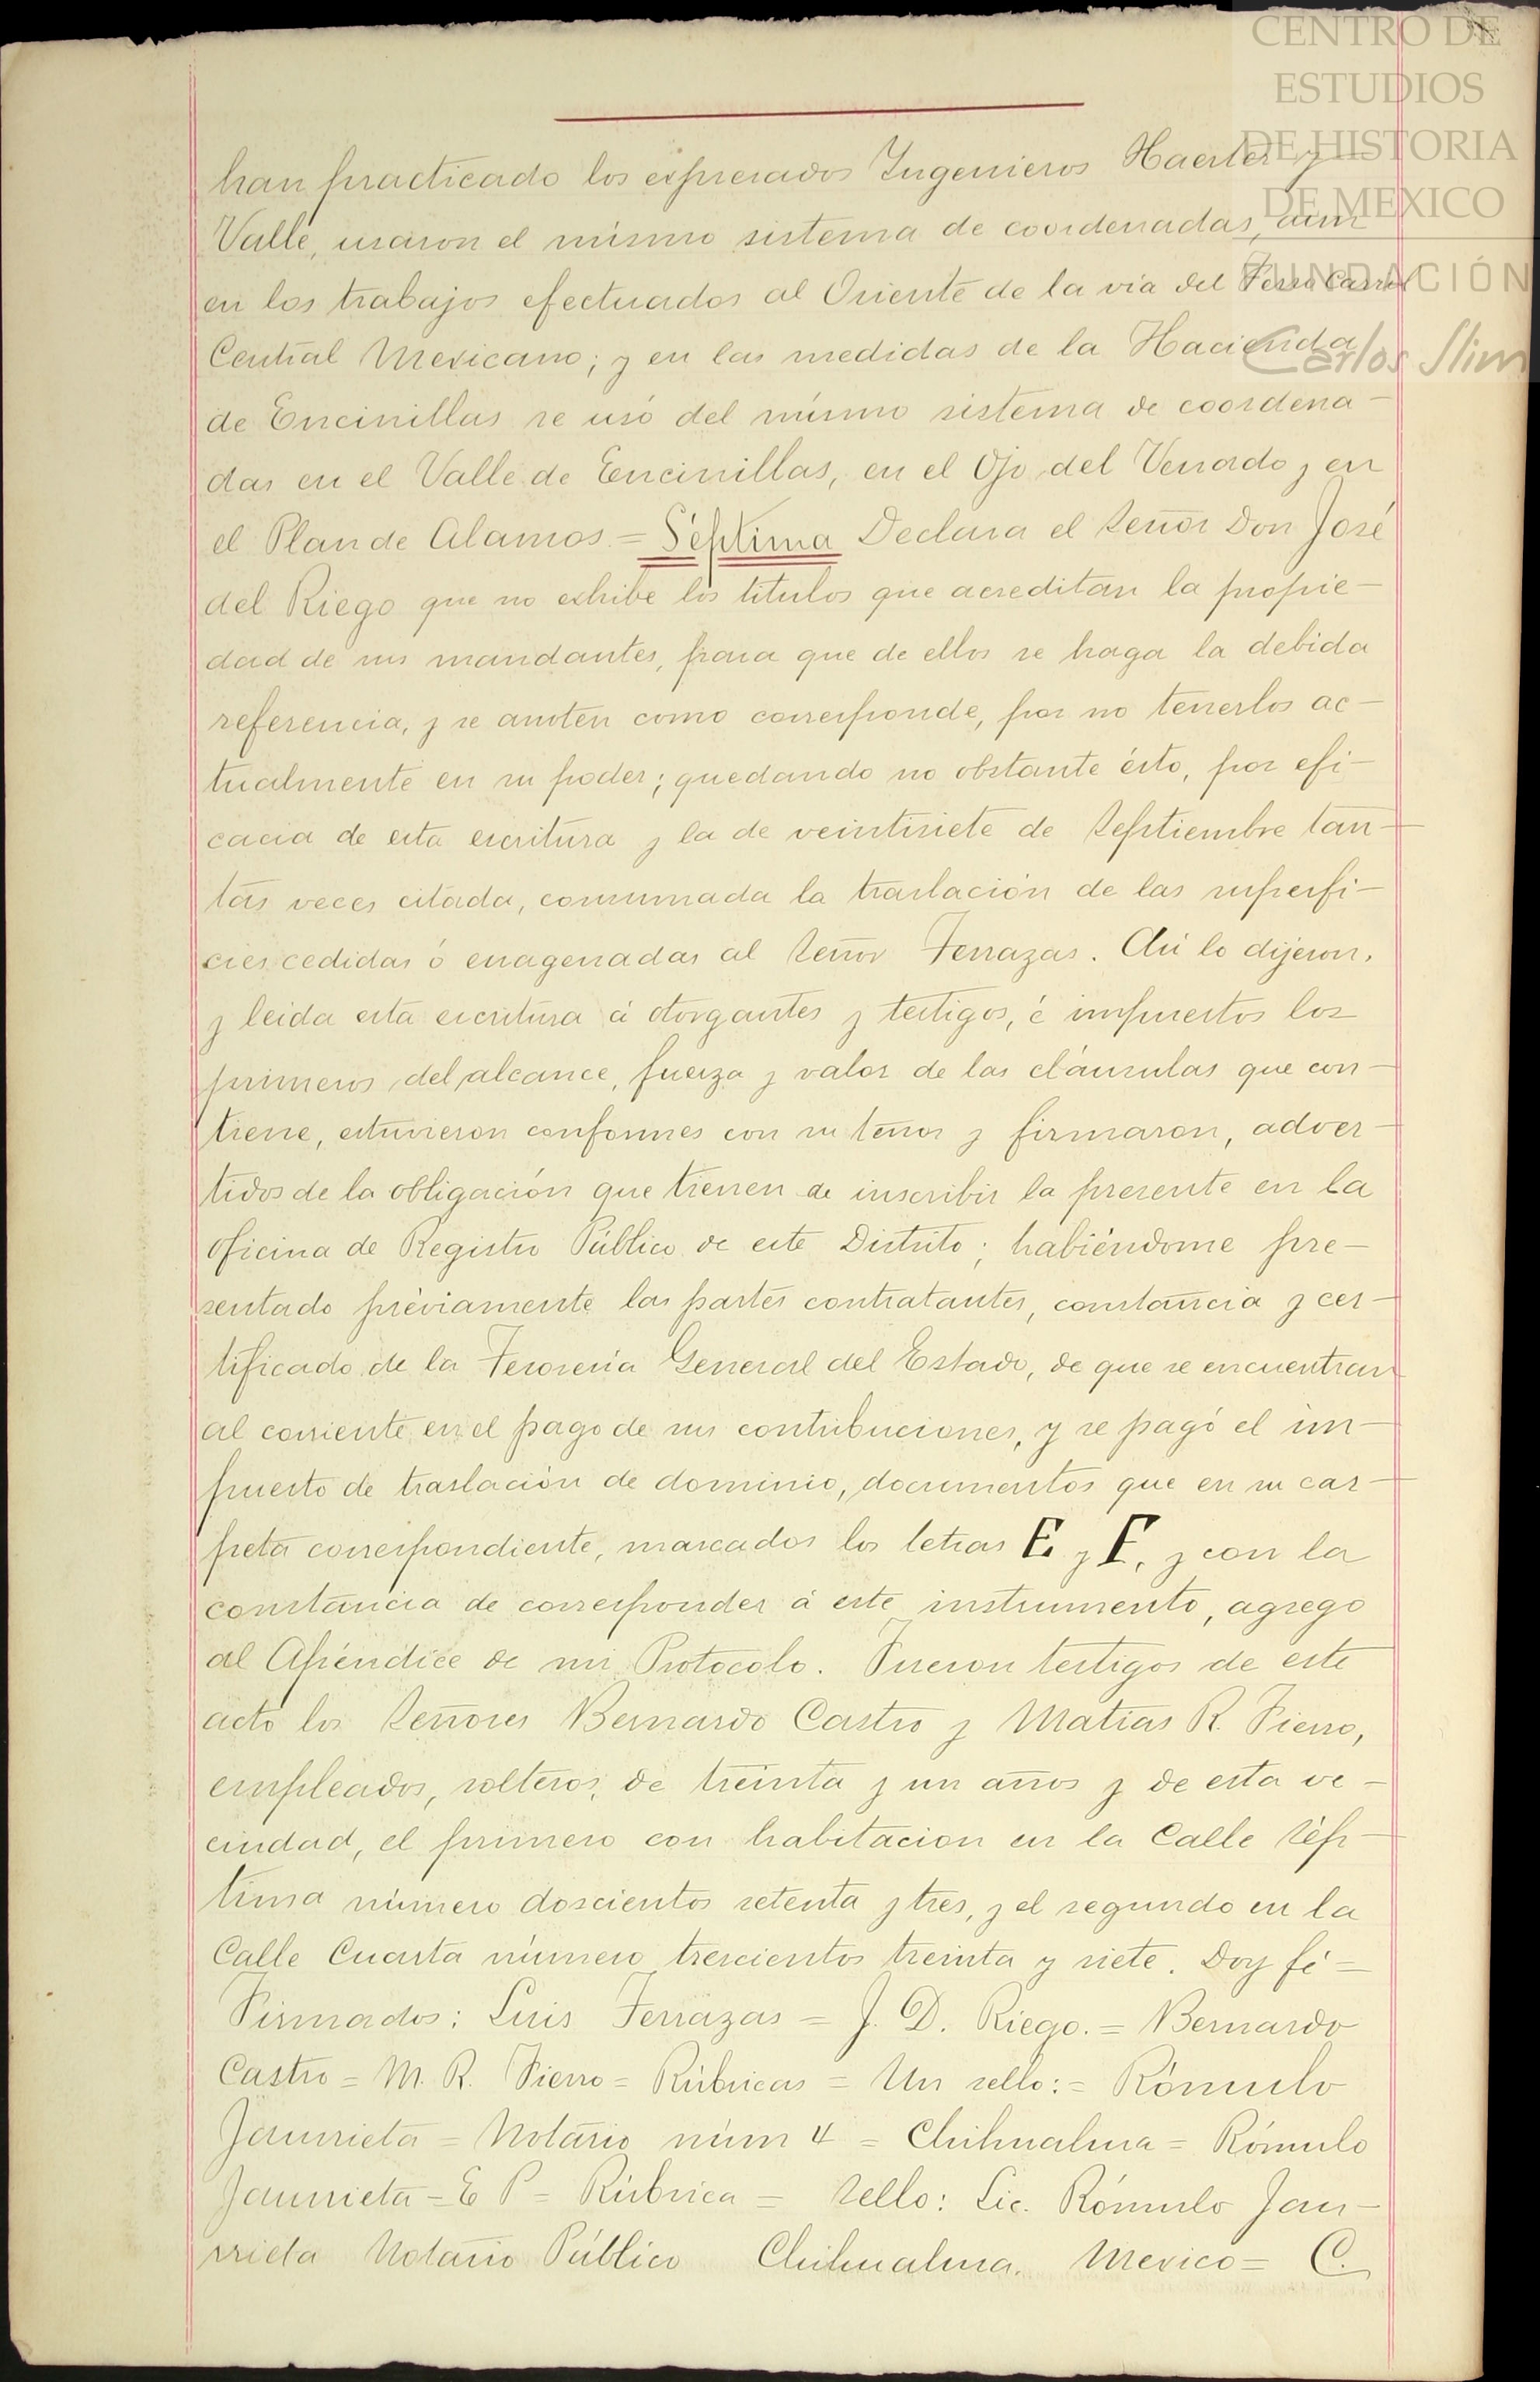 CENTRO DE
ESTUDIOS
DE HISTORIA
DE MEXICO
FUNDACIÓN
Carlos Slim
han practicado los expresados Ingenieros Haerter y
Valle, usaron el mismo sistema de coordenadas, aun
en los trabajos efectuados al Oriente de la via del Ferro Carril
Central Mexicano; y en las medidas de la Hacienda
de Encinillas se usó del mismo sistema de coordena-
das en el Valle de Encinillas, en el Ojo del Venado y en
el Plan de Alamos = Séptima Declara el Señor Don José
del Riego que no exhibe los titulos que acreditan la propie-
dad de sus mandantes, para que de ellos se haga la debida
referencia, y se anoten como corresponde, por no tenerlos ac-
tualmente en su poder; quedando no obstante ésto, por efi-
cacia de esta escritura y la de veintisiete de Septiembre tan-
tas veces citada, consumada la traslación de las superfi-
cies cedidas ó enagenadas al Señor Terrazas. Así lo dijeron,
y leida esta escritura á otorgantes y testigos, é impuestos los
primeros del alcance, fuerza y valor de las cláusulas que con-
tiene, estuvieron conformes con su tenor y firmaron, adver-
tidos de la obligación que tienen de inscribir la presente en la
oficina de Registro Público de este Distrito; habiéndome pre-
sentado préviamente las partes contratantes, constancia y cer-
tificado de la Tesoreria General del Estado, de que se encuentran
al corriente en el pago de sus contribuciones, y se pagó el im-
puesto de traslación de dominio, documentos que en su car-
peta correspondiente, marcados los letras E y F, y con la
constancia de corresponder á este instrumento, agrego
al Apéndice de mi Protocolo. Fueron testigos de este
acto los Señores Bernardo Castro y Matias R. Fierro,
empleados, solteros, de treinta y un años y de esta ve-
cindad, el primero con habitacion en la Calle Sép-
tima número doscientos setenta y tres, y el segundo en la
Calle Cuarta número trescientos treinta y siete. Doy fé =
Firmados: Luis Terrazas = J. D. Riego. = Bernardo
Castro = M. R. Fierro = Rúbricas = Un sello: = Rómulo
Jaurrieta = Notario núm 4 = Chihuahua = Rómulo
Jaurrieta = E P = Rúbrica = Sello: Lic. Rómulo Jau-
rrieta Notario Público Chihuahua. Mexico = C.